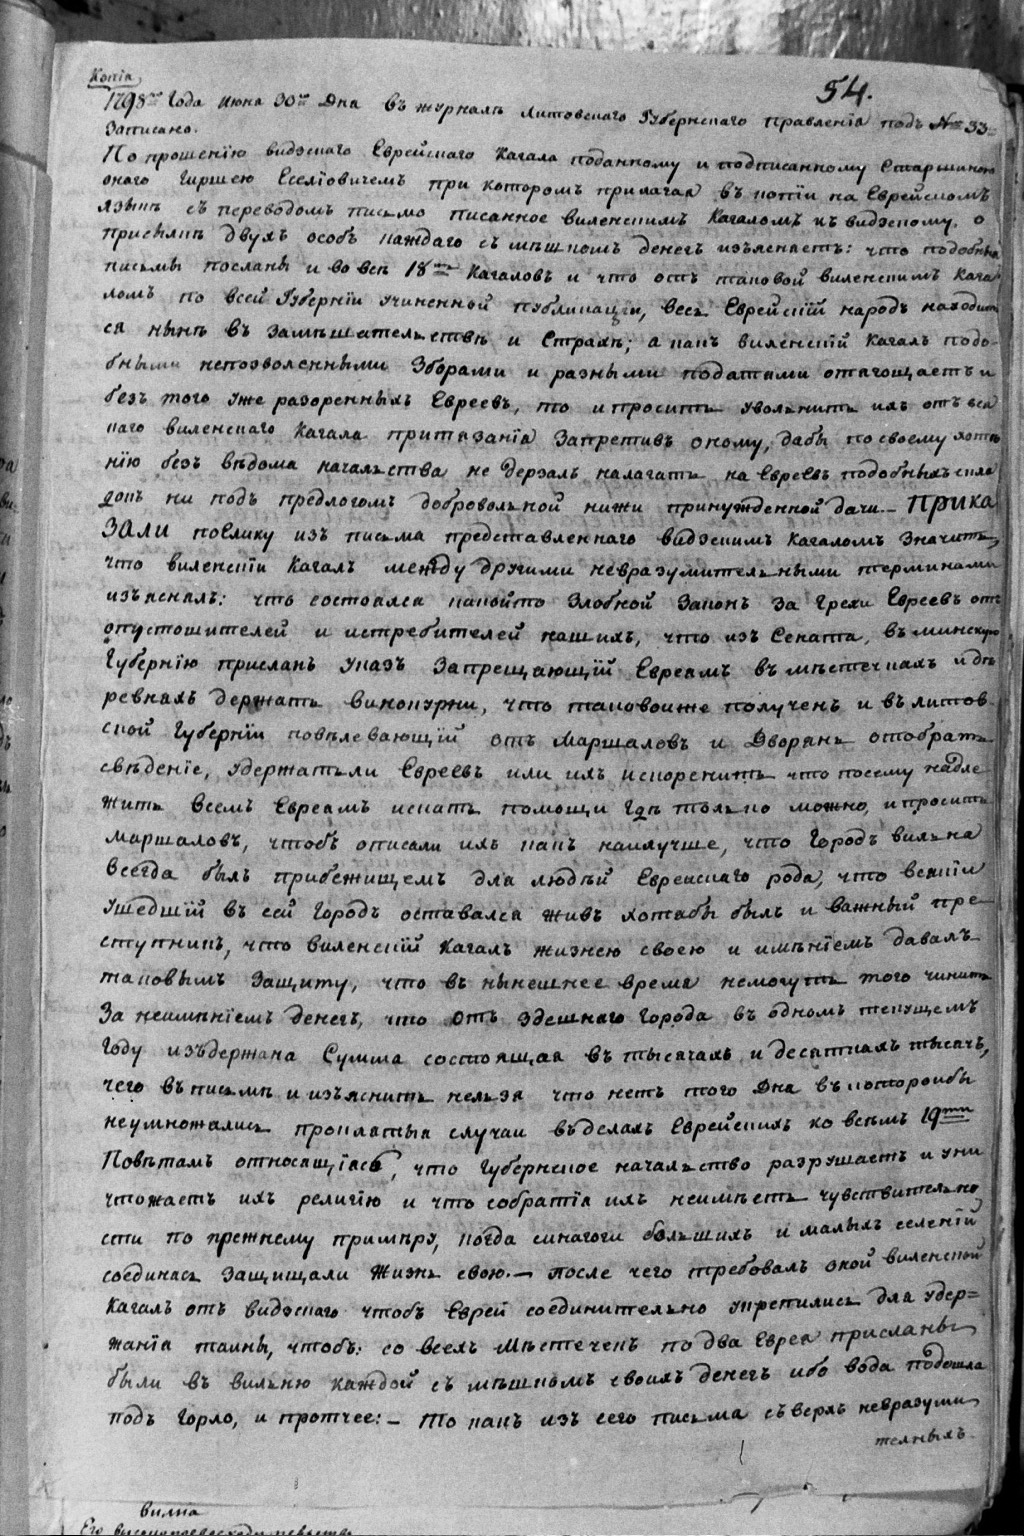 Копія
54.
1798го Года июня 30го Дня въ журналѣ Литовскаго Губернскаго правленія подъ №мъ 33
Записано.
По прошенію видзскаго Еврейскаго Кагала поданному и подписанному Старшиною
онаго Гиршею Еселіовичемъ при которомъ прилагая въ копіи на Еврейскомъ
языкѣ съ переводомъ письмо писанное виленскимъ Кагаломъ къ видзскому, о
присылкѣ двухъ особъ каждаго съ мѣшкомъ денегъ изъясняетъ: что подобныя
письмы посланы и во всѣ 18ть Кагаловъ и что отъ таковой виленскимъ Кага
ломъ по всей Губерніи учиненной публикаціи, весь Еврейскій народъ находит
ся нынѣ въ замѣшательствѣ и Страхѣ; а какъ виленскій Кагалъ подо-
бными непозволенными Зборами и разными податьми отягощаетъ и
безъ того уже разоренныхъ Евреевъ, то и проситъ уволнить ихъ отъ вся
каго виленскаго Кагала притязанія Запретивъ оному, дабы по своему хотѣ
нію безъ вѣдома начальства не дерзалъ налагать на Евреевъ подобныхъ скла
докъ ни подъ предлогомъ добровольной нижи принужденной дачи. — ПРИКА
ЗАЛИ поелику изъ письма представленнаго видзскимъ Кагаломъ Значитъ,
что виленскіи Кагалъ между другими невразумительными терминами
изъяснялъ: что состоялся какойто Злобной Законъ за Грехи Евреевъ отъ
опустошителей и истребителей нашихъ, что изъ Сената, въ минскую
Губернію присланъ Указъ Запрещающій Евреямъ въ мѣстечкахъ и де
ревняхъ держать винокурни, что таковоиже полученъ и въ литов-
ской Губерніи повѣлевающій отъ Маршаловъ и Дворянъ отобрать
свѣденіе, удержатьли Евреевъ или ихъ искоренить что посему надле
житъ всемъ Евреямъ искать помощи Гдѣ только можно, и просить
Маршаловъ, чтобъ описали ихъ какъ наилучше, что Городъ вильна
всегда былъ прибежищемъ для людѣй Евреискаго рода, что всякіи
ушедшій въ сей Городъ оставался живъ хотябы былъ и важный пре-
ступникъ, что виленскій Кагалъ жизнею своею и имѣніемъ давалъ
таковымъ Защиту, что въ нынешнее время немогутъ того чинить
За неимѣніемъ денегъ, что отъ здешняго Города въ одномъ текущемъ
Году издержана Сумма состоящая въ тысячахъ и десяткахъ тысячъ,
чего въ письмѣ и изъяснить нельзя что нетъ того Дня въ которомбы
неумножались проклятыя случаи въ делахъ Еврейскихъ ко всѣмъ 19ти
Повѣтамъ относящіясь, что Губернское начальство разрушаетъ и уни
чтожаетъ ихъ религію и что собратія ихъ неимѣетъ чувствительно
сти по прежнему примѣру, когда синагоги большихъ и малыхъ селеній
соединясь Защищали Жизнь свою. — после чего требовалъ оной виленской
Кагалъ отъ видзскаго чтобъ Евреи соединительно укрепились для удер=
жанія тайны, чтобъ: со всехъ Мѣстечекъ по два Еврея присланы
были въ вильню каждой съ мѣшкомъ своихъ денегъ ибо вода подошла
подъ Горло, и протчее: — То какъ изъ сего письма съ верхъ невразуми
телныхъ.
вилнa
Его высокопревосходительству